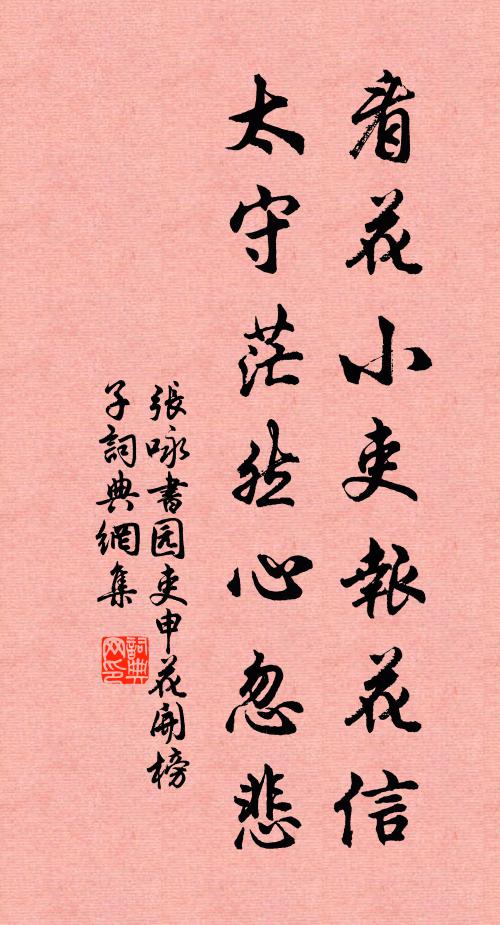 看花小吏報花信
太守茫然心忽悲
張咏書园吏申花開榜
子詞典網集
詞典网印